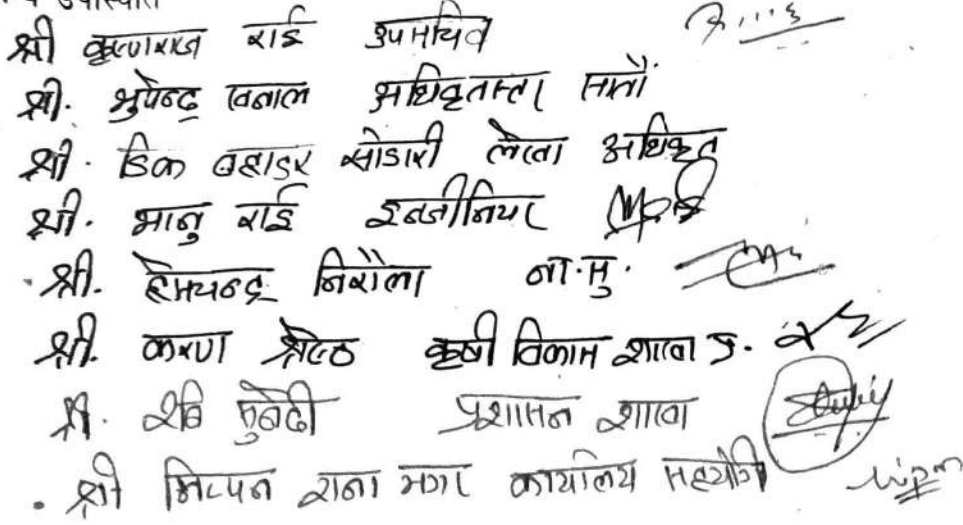 उपस्थिति
श्री कृष्णराज राई उपसचिव
श्री. भुपेन्द्र खनाल अधिकृतस्तर सातौं
श्री. डिक बहादुर सोडारी लेखा अधिकृत
श्री. भानु राई इन्जीनियर
श्री. हेमचन्द्र निरौला ना.सु.
श्री. करण श्रेष्ठ कृषी विकास शाखा प्र.
श्री. रवि सुवेदी प्रशासन शाखा
श्री निप्पन राना मगर कार्यालय सहयोगी